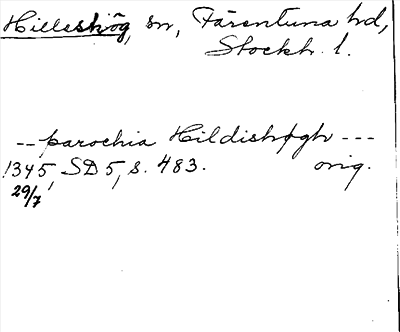 Hilleshög, sn, Färentuna hd,
Stockh. l.
-- parochia Hildishøgh ---
1345, SD 5, s. 483. orig.
29/7